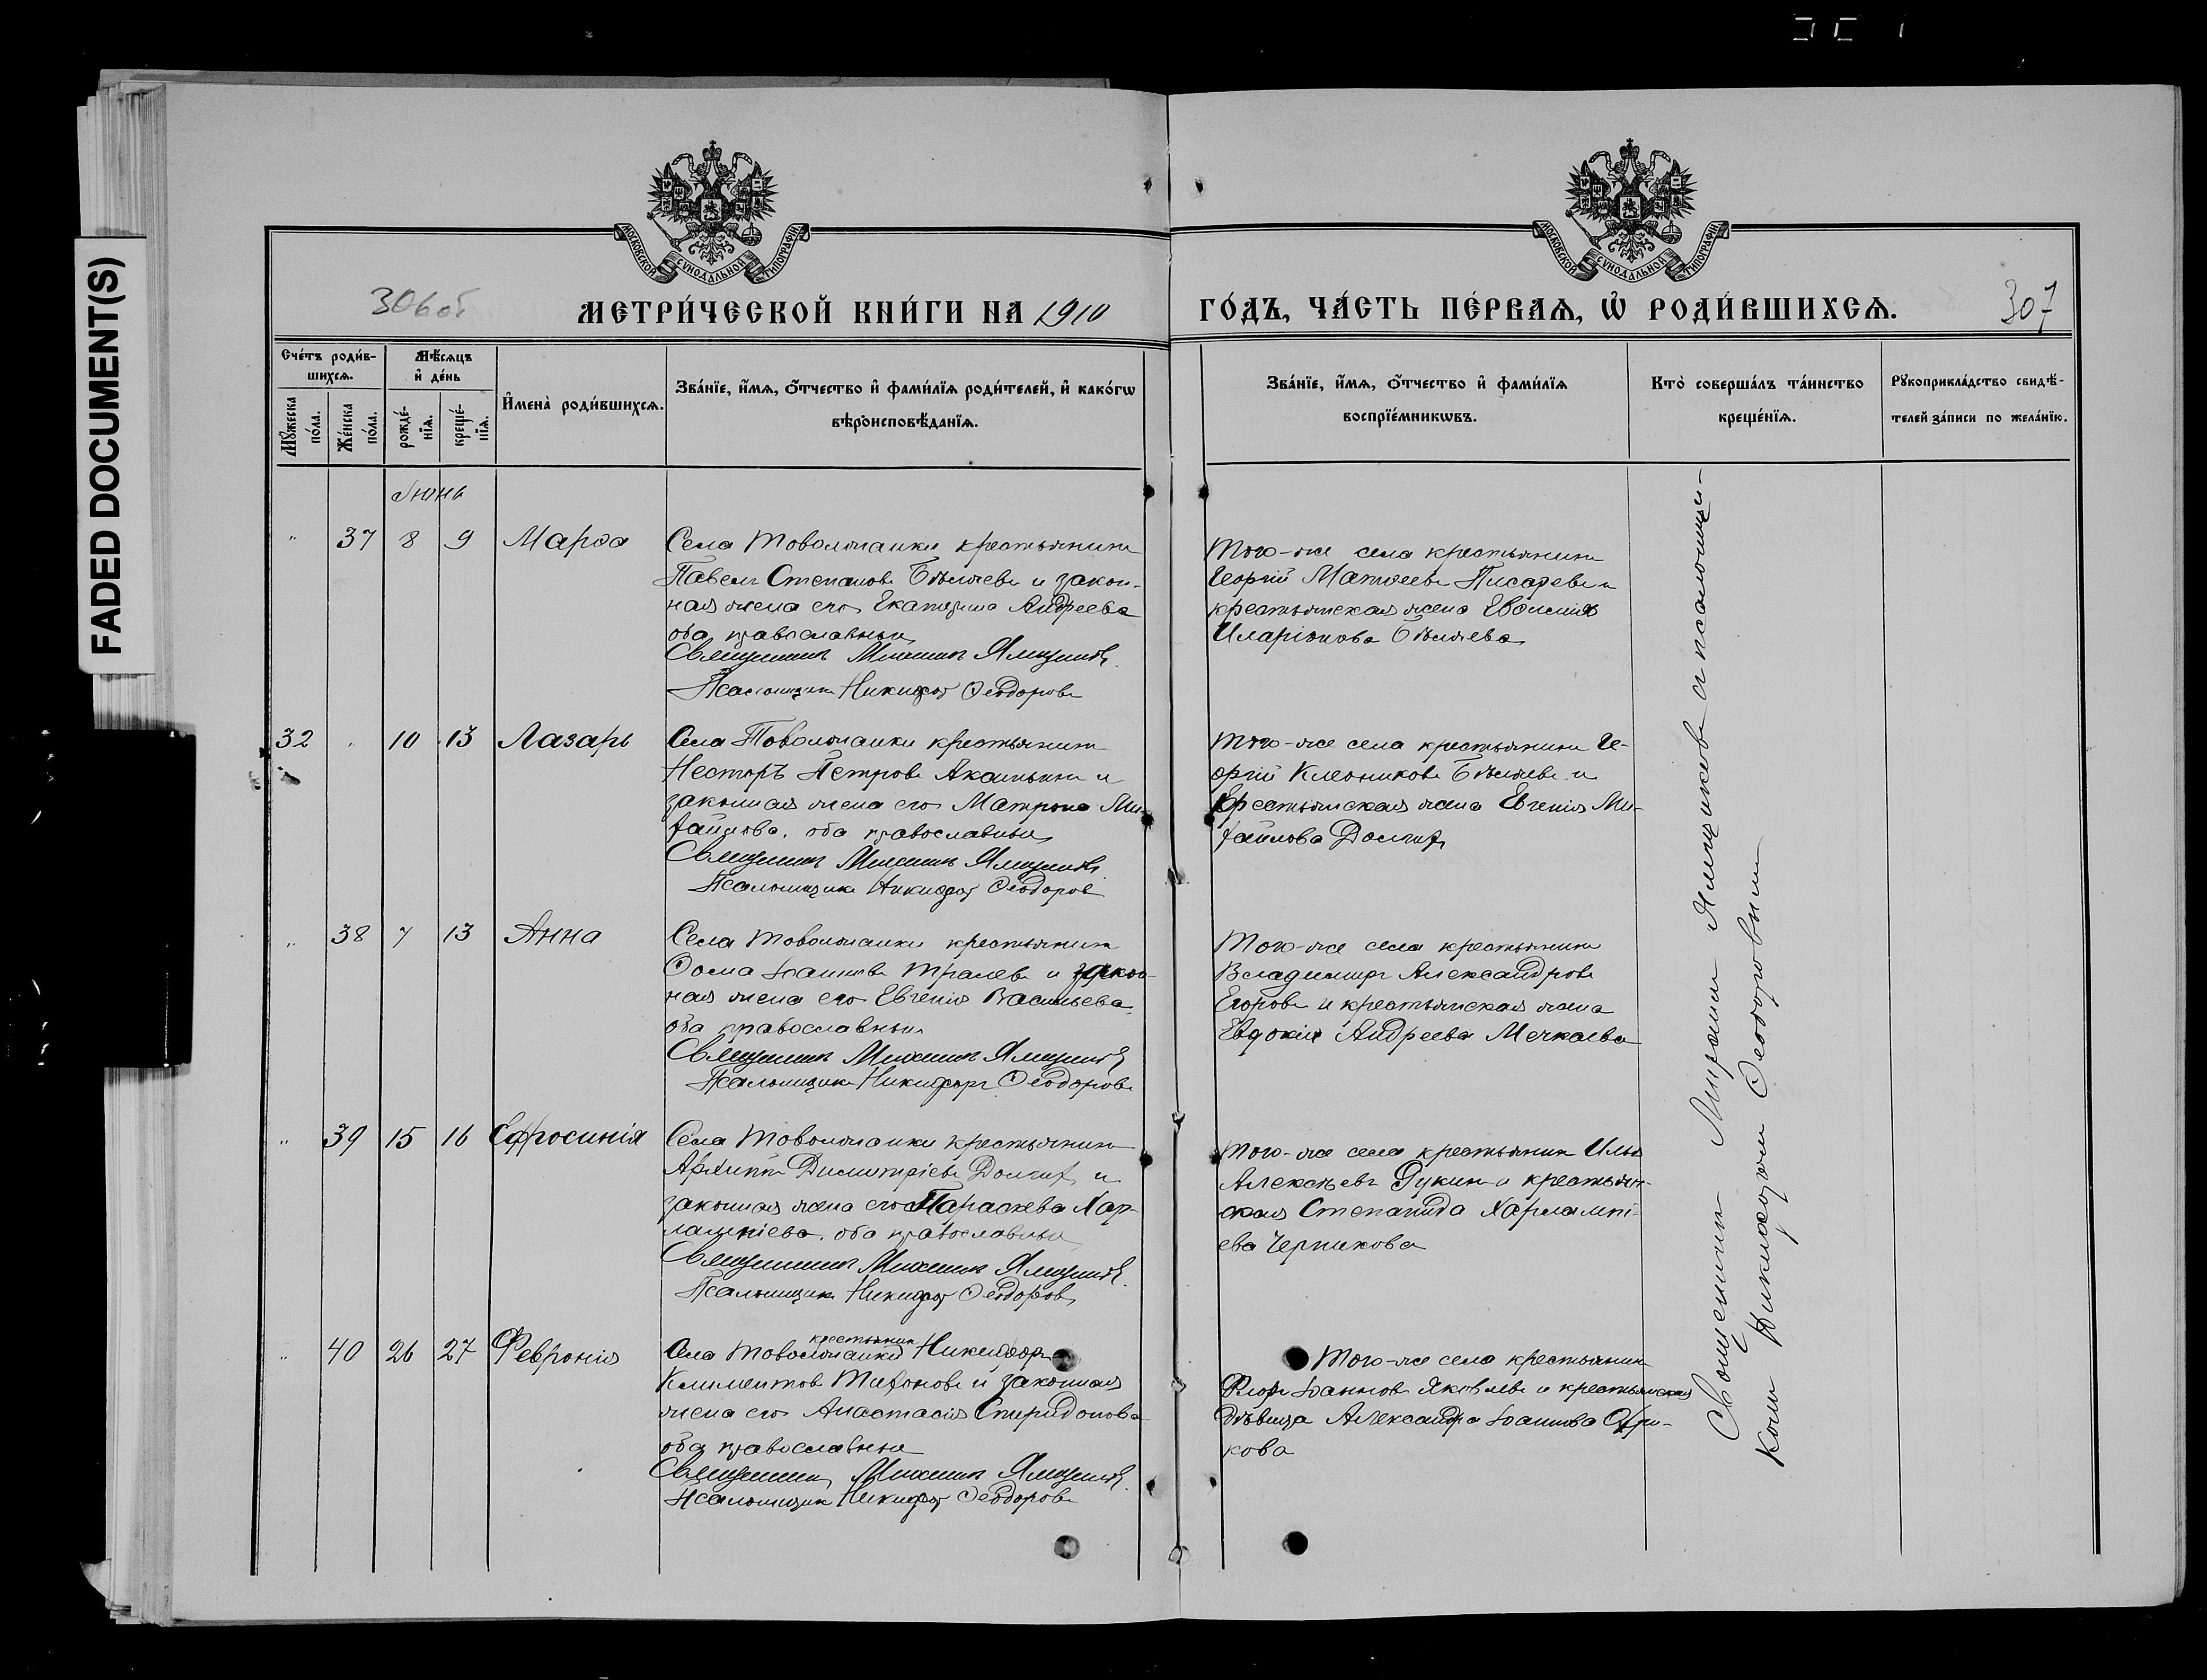 FADED DOCUMENT(S)
МОСКОВСКОЙ СѴНОДАЛЬНОЙ ТИПОГРАФІИ
МОСКОВСКОЙ СѴНОДАЛЬНОЙ ТИПОГРАФІИ
306об
МЕТРИ́ЧЕСКОЙ КНИ́ГИ НА 1910
ГО́ДЪ, ЧА́СТЬ ПЕ́РВАѦ, Ѡ҆ РОДИ́ВШИХСѦ.
307
Сче́тъ роди́в-
шихсѧ.
Мꙋ́жеска по́ла.
Же́нска по́ла.
Мѣ́сѧцъ и҆ де́нь
рожде́-
нїѧ.
креще́-
нїѧ.
И҆мена̀ роди́вшихсѧ.
Зва́нїе, и҆́мѧ, ѻ҆́тчество и҆ фами́лїѧ роди́телей, и҆ како́гѡ
вѣроисповѣ́данїѧ.
Зва́нїе, и҆́мѧ, ѻ҆́тчество и҆ фами́лїѧ
воспрїе́мникѡвъ.
Кто̀ соверша́лъ та́инство
креще́нїѧ.
Рꙋкоприкла́дство свидѣ́-
телей за́писи по жела́нїю.
Іюнь
" 37 8 9 Марѳа
Села Товолжанки крестьянинъ
Павелъ Степановъ Бѣляевъ и закон-
ная жена его Екатерина Андреева
оба православные
Священникъ Михаилъ Ямщиковъ
Псаломщикъ Никифоръ Ѳеодоровъ
Того-же села крестьянинъ
Георгій Матѳеевъ Писаревъ и
крестьянская жена
Иларіонова Бѣляева
32 " 10 13 Лазарь
Села Товолжанки крестьянинъ
Несторъ Петровъ Акатьинъ и
законная жена его Матрона Ми-
хайлова. оба православные
Священникъ Михаилъ Ямщиковъ
Псаломщикъ Никифоръ Ѳеодоровъ
Того-же села крестьянинъ Ге-
оргій Клеониковъ Бѣляевъ и
крестьянская жена Евгенія Ми-
хайлова Долгихъ
" 38 7 13 Анна
Села Товолжанки крестьянинъ
Ѳома Іоанновъ Тралевъ и закон-
ная жена его Евгенія Васильева
оба православные
Священникъ Михаилъ Ямщиковъ
Псаломщикъ Никифоръ Ѳеодоровъ
Того-же села крестьянинъ
Владимиръ Александровъ
Егоровъ и крестьянская жена
Евдокія Андреева Мечкаева
" 39 15 16 Ефросинія
Села Товолжанки крестьянинъ
Архиппъ Димитріевъ Долгихъ и
законная жена его Параскева Хар-
лампіева. оба православные
Священникъ Михаилъ Ямщиковъ
Псаломщикъ Никифоръ Ѳеодоровъ
Того-же села крестьянинъ Илья
Алексѣевъ Рукинъ и крестьян-
ская Степанида Харлампі-
ева Черникова
" 40 26 27 Февронія
крестьянинъ
Села Товолжанки Никифоръ
Климентовъ Тихоновъ и законная
жена его Анастасія Спиридонова
оба православные
Священникъ Михаилъ Ямщиковъ
Псаломщикъ Никифоръ Ѳеодоровъ
Того-же села крестьянинъ
Флоръ Іоанновъ Яковлевъ и крестьянская
дѣвица Александра Іоаннова
кова
Священникъ Михаилъ Ямщиковъ съ псаломщи-
комъ Никифоромъ Ѳеодоровымъ